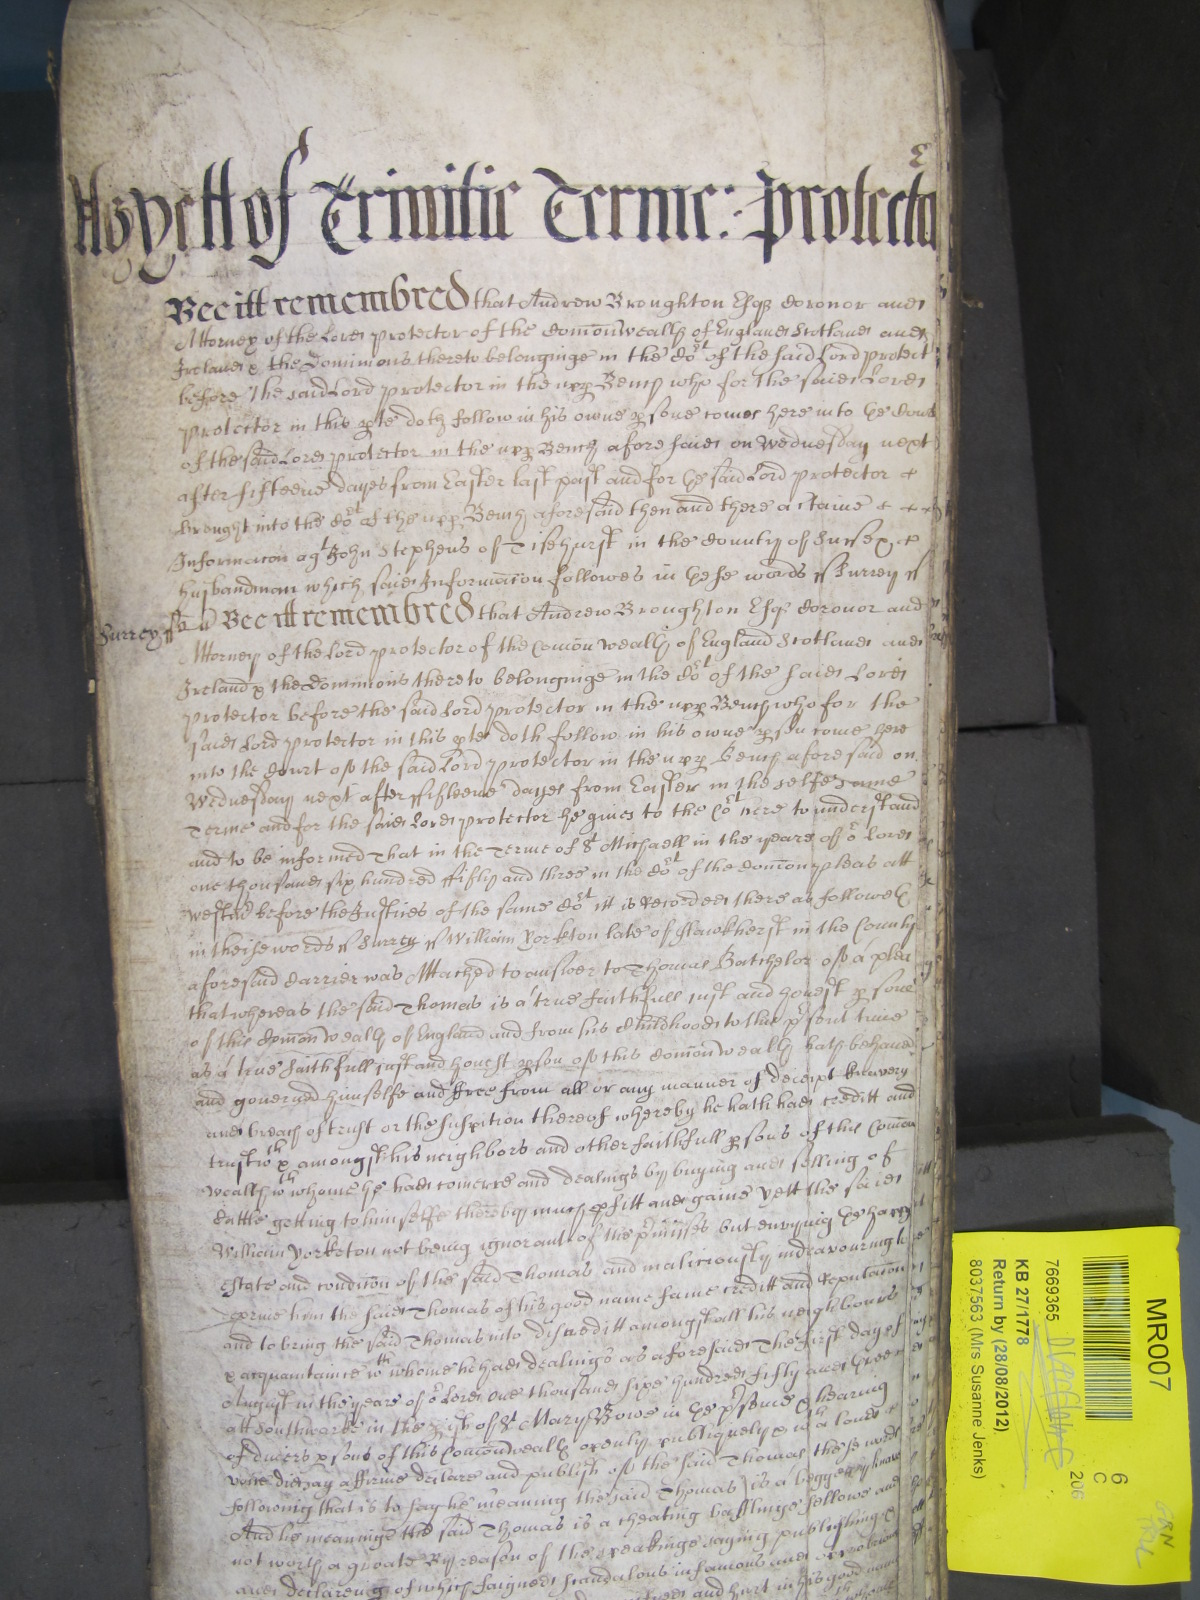 of Trinitie Terme: Protecto
Bee itt remembred that Andrew Broughton Esqr Coronor and
Attorney of the Lord Protector of the Comonwealth of England Scotland and
Ireland & the Dominions thereto belonginge in the Cort of the said Lord Protect
before the said Lord Protector in the upp Bench who for the said Lord
Protector in this pte doth follow in his owne psone comes here into the Court
of the said Lord Protector in the upp Bench aforesaid on Wednesday next
after fifteene dayes from Easter last past and for the said Lord Protector
brought into the Cort of the upp Bench aforesaid then and there a certaine
Informacon agt John Stephens of Tisehurst in the County of Sussex
husbandman which said Informacon followes in these words ss Surrey ss
Surrey ss Bee itt remembred that Andrew Broughton Esqr Coronor and
Attorney of the Lord Protector of the Comonwealth of England Scotland and
Ireland & the Dominions thereto belonginge in the Cort of the said Lord
Protector before the said Lord Protector in the upp Bench who for the
said Lord Protector in this pte doth follow in his owne pson come here
into the Court of the said Lord Protector in the upp Bench aforesaid on
Wednesday next after ffifteene dayes from Easter in the selfe same
Terme and for the said Lord Protector he gives to the Cort here to understand
and to be informed That in the Terme of St Michaell in the yeare of or Lord
one thousand six hundred ffifty and three in the Cort of the Comon pleas att
Westmr before the Justices of the same Cort itt is Recorded there as followeth
in theise words ss Surrey ss William Yorkton late of Hawkherst in the County
aforesaid Carrier was Attached to answer to Thomas Batchelor of a plea
that whereas the said Thomas is a true faithfull just and honest psone
of this Comonwealth of England and from his Childhood to this psent time
as a true faithfull just and honest pson of this Comonwealth hath behaved
and governed himselfe and ffree from all or any manner of deceipt knavery
and breach of trust or the suspition thereof whereby he hath had creditt and
trust wth & amongst his neighbors and other faithfull psons of this Comon
wealth wth whome he had comerce and dealings by buying and selling of
Cattle getting to himselfe thereby much pfitt and gaine Yett the said
William Yorketon not being ignorant of the pmisses but envying the happy
estate and condicon of the said Thomas and maliciously indeavouring to
deprive him the said Thomas of his good name fame creditt and Reputacon
and to bring the said Thomas into discreditt amongst all his neighbours
& acquaintance wth whome he had dealings as aforesaid The first day of
August in the yeare of or Lord One thousand sixe hundred fifty and three
att Southwarke in the pish of St Mary Bowe in the psence & hearing
of divers psons of this Comonwealth openly publiquely & wth a loud
voice did say affirme declare and publish of the said Thomas these words
following that is to say he meaning the said Thomas is a beggerly knave
And he meaninge the said Thomas is a cheating bafflinge fellowe and
not worth a groate By reason of the speakinge saying publishing
and declareing of which faigned scandalous infamous and
and hurt in his good name
MR007
6
C
206
7669365
KB 27/1778
Return by (28/08/2012)
8037563 (Mrs Susanne Jenks)